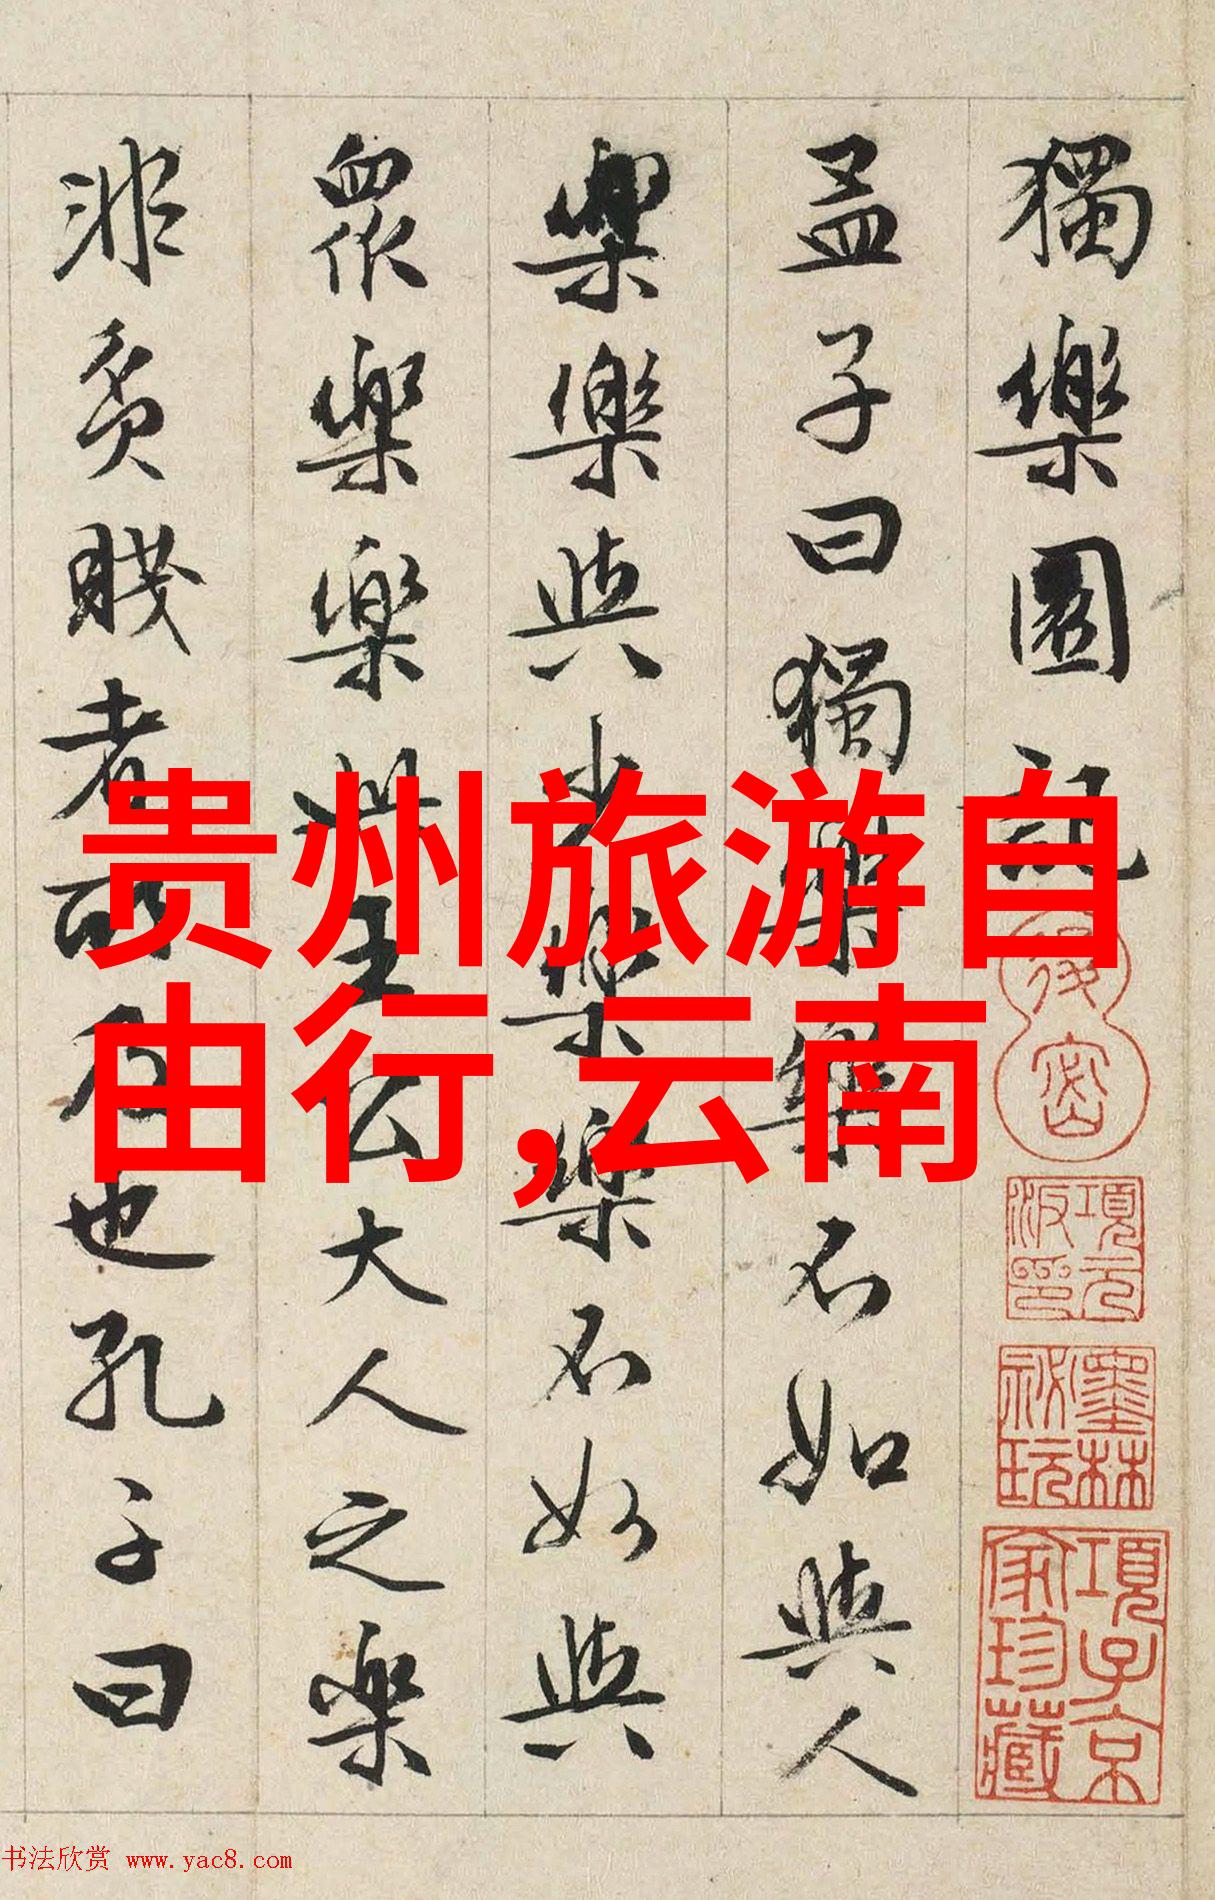 獨樂園記
孟子曰獨樂樂不如與人
樂樂與少樂樂不如與
眾樂樂此王公大人之樂
非貧賤者所及也孔子曰
貴州旅游自
由行,云南
項元
汴印
墨林
祕玩
項子京
家珍藏
书法欣赏 www.yac8.com